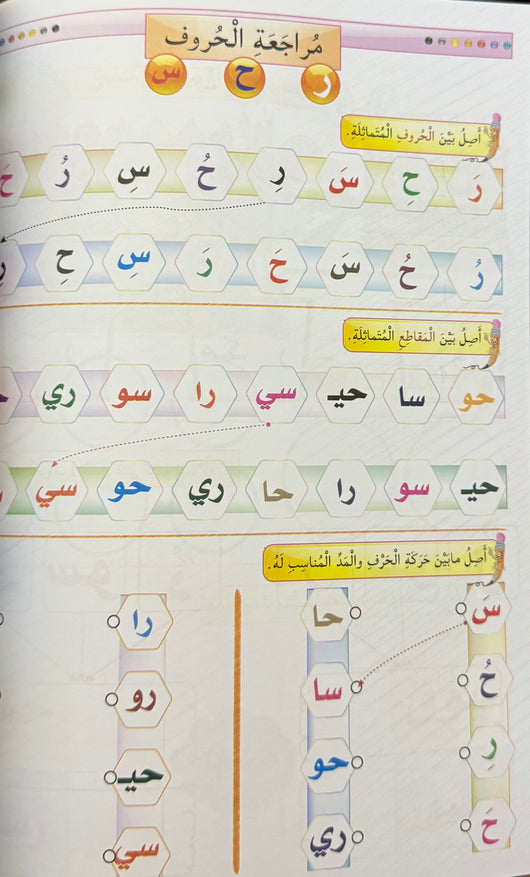 مُراجَعَةِ الْحُروف
ر ح س
أَصِلُ بَيْنَ الْحُروفِ الْمُتَماثِلَةِ.
رَ حِ سَ رِ حُ سِ رُ حَ
رُ حُ سَ حَ رَ سِ حِ
أَصِلُ بَيْنَ الْمَقاطِعِ الْمُتَماثِلَةِ.
حو سا حيـ سي را سو ري
حيـ سو را حا ري حو سي
أَصِلُ مابَيْنَ حَرَكَةِ الْحَرْفِ والْمَدِّ الْمُناسِبِ لَهُ.
سَ حا را
حُ سا رو
رِ حو حيـ
حَ ري سي